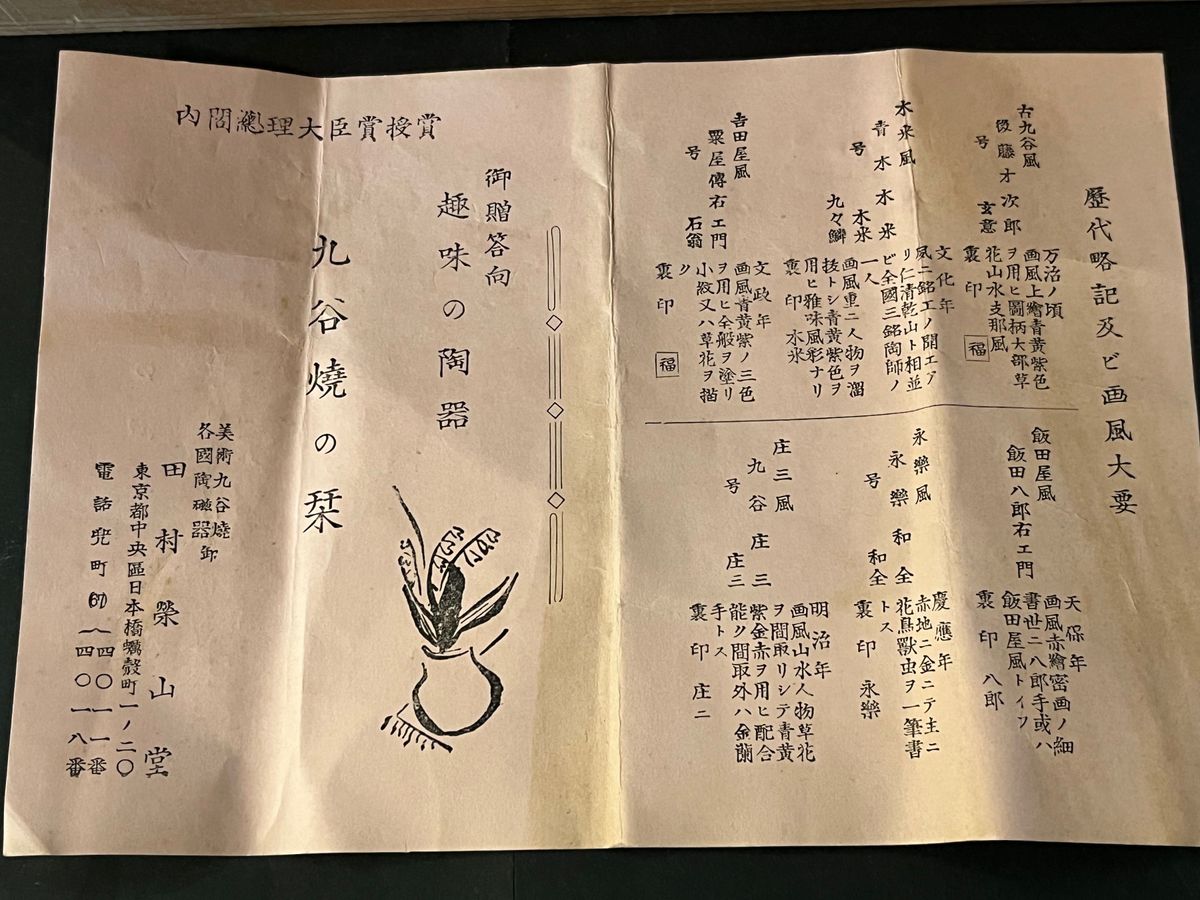 歴代略記及ビ画風大要
古九谷風
後藤才次郎
号 玄意
万治ノ頃
画風上繪青黄紫色
ヲ用ヒ圖柄大部草
花山水支那風
裏印 福
木米風
青木木米
号 木米
九々鱗
文化年
風ニ銘工ノ開エア
リ仁清乾山ト相並
ビ全國三銘陶師ノ
一人
画風重ニ人物ヲ溜
技トシ青黄紫色ヲ
用ヒ雅味風彩ナリ
裏印 木米
吉田屋風
粟屋傳右エ門
号 石翁
文政年
画風青黄紫ノ三色
ヲ用ヒ全般ヲ塗リ
小紋又ハ草花ヲ描
ク
裏印 福
飯田屋風
飯田八郎右エ門
天保年
画風赤繪密画ノ細
書世ニ八郎手或ハ
飯田屋風トイフ
裏印 八郎
永樂風
永樂和全
号 和全
慶應年
赤地ニ金ニテ主ニ
花鳥獸虫ヲ一筆書
トス
裏印 永樂
庄三風
九谷庄三
号 庄三
明治年
画風山水人物草花
ヲ間取リシテ青黄
紫金赤ヲ用ヒ配合
能ク間取外ハ金蘭
手トス
裏印 庄三
内閣總理大臣賞授賞
御贈答向
趣味の陶器
九谷燒の栞
美術九谷燒
各國陶磁器卸
田村榮山堂
東京都中央區日本橋蠣殻町一ノ二〇
電話兜町(67)一四〇一一番
一四〇一八番